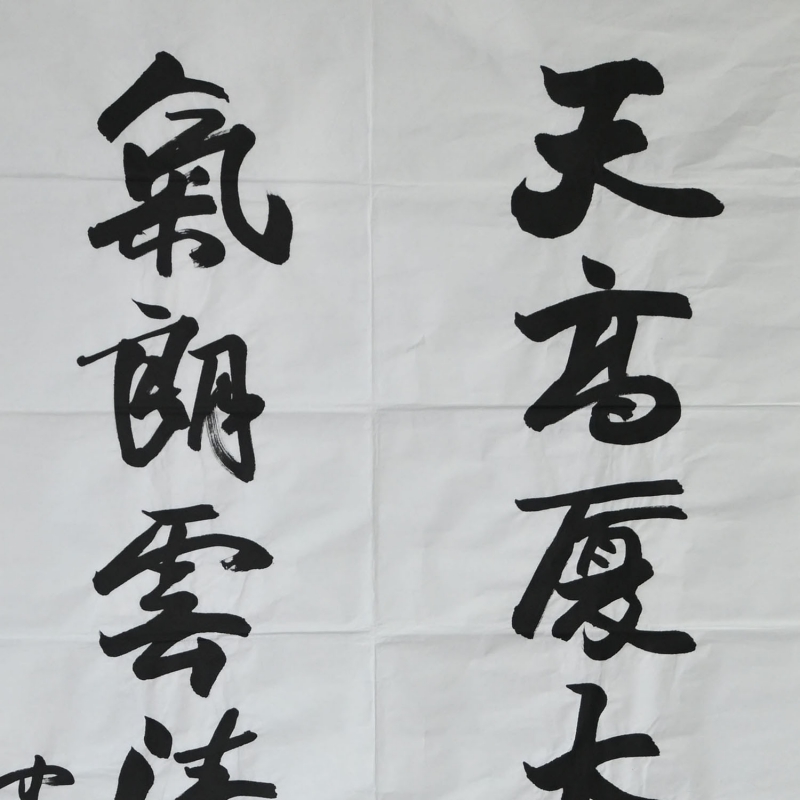 天高厦
氣朗雲清